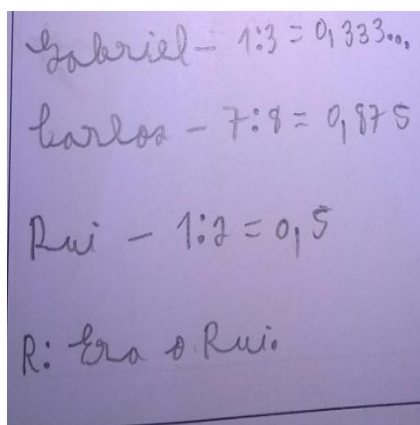 Gabriel - 1:3 = 0,333...
Carlos - 7:8 = 0,875
Rui - 1:2 = 0,5
R: Era o Rui.